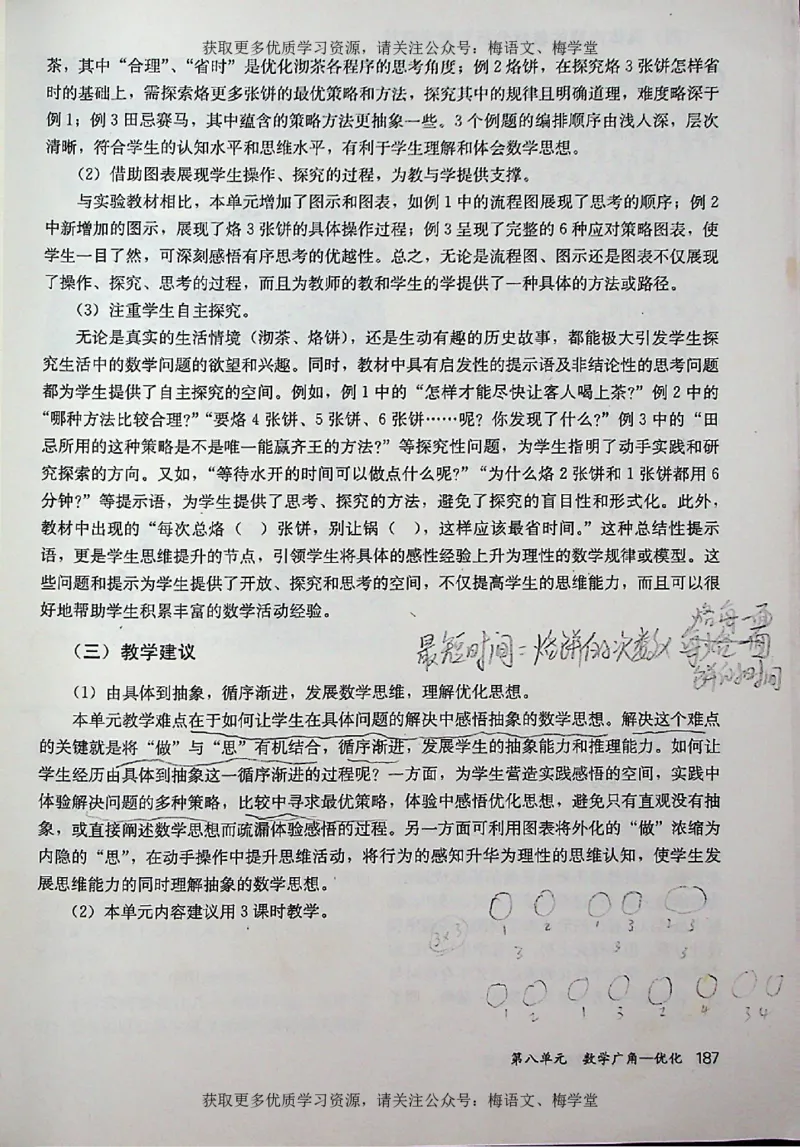 获取更多优质学习资源，请关注公众号：梅语文、梅学堂
茶，其中“合理”、“省时”是优化沏茶各程序的思考角度；例 2 烙饼，在探究烙 3 张饼怎样省
时的基础上，需探索烙更多张饼的最优策略和方法，探究其中的规律且明确道理，难度略深于
例 1；例 3 田忌赛马，其中蕴含的策略方法更抽象一些。3 个例题的编排顺序由浅入深，层次
清晰，符合学生的认知水平和思维水平，有利于学生理解和体会数学思想。
（2）借助图表展现学生操作、探究的过程，为教与学提供支撑。
与实验教材相比，本单元增加了图示和图表，如例 1 中的流程图展现了思考的顺序；例 2
中新增加的图示，展现了烙 3 张饼的具体操作过程；例 3 呈现了完整的 6 种应对策略图表，使
学生一目了然，可深刻感悟有序思考的优越性。总之，无论是流程图、图示还是图表不仅展现
了操作、探究、思考的过程，而且为教师的教和学生的学提供了一种具体的方法或路径。
（3）注重学生自主探究。
无论是真实的生活情境（沏茶、烙饼），还是生动有趣的历史故事，都能极大引发学生探
究生活中的数学问题的欲望和兴趣。同时，教材中具有启发性的提示语及非结论性的思考问题
都为学生提供了自主探究的空间。例如，例 1 中的“怎样才能尽快让客人喝上茶?”例 2 中的
“哪种方法比较合理?”“要烙 4 张饼、5 张饼、6 张饼……呢？你发现了什么?”例 3 中的“田
忌所用的这种策略是不是唯一能赢齐王的方法?”等探究性问题，为学生指明了动手实践和研
究探索的方向。又如，“等待水开的时间可以做点什么呢?”“为什么烙 2 张饼和 1 张饼都用 6
分钟?”等提示语，为学生提供了思考、探究的方法，避免了探究的盲目性和形式化。此外，
教材中出现的“每次总烙（　）张饼，别让锅（　），这样应该最省时间。”这种总结性提示
语，更是学生思维提升的节点，引领学生将具体的感性经验上升为理性的数学规律或模型。这
些问题和提示为学生提供了开放、探究和思考的空间，不仅提高学生的思维能力，而且可以很
好地帮助学生积累丰富的数学活动经验。
烙每一面
（三）教学建议
最短时间=烙饼的次数×
饼的时间
（1）由具体到抽象，循序渐进，发展数学思维，理解优化思想。
本单元教学难点在于如何让学生在具体问题的解决中感悟抽象的数学思想。解决这个难点
的关键就是将“做”与“思”有机结合，循序渐进，发展学生的抽象能力和推理能力。如何让
学生经历由具体到抽象这一循序渐进的过程呢？一方面，为学生营造实践感悟的空间，实践中
体验解决问题的多种策略，比较中寻求最优策略，体验中感悟优化思想，避免只有直观没有抽
象，或直接阐述数学思想而疏漏体验感悟的过程。另一方面可利用图表将外化的“做”浓缩为
内隐的“思”，在动手操作中提升思维活动，将行为的感知升华为理性的思维认知，使学生发
展思维能力的同时理解抽象的数学思想。
（2）本单元内容建议用 3 课时教学。
1 2 1 3 2 3
3 3 3
1 2 1 3 2 4 3 4
第八单元　数学广角—优化 187
获取更多优质学习资源，请关注公众号：梅语文、梅学堂